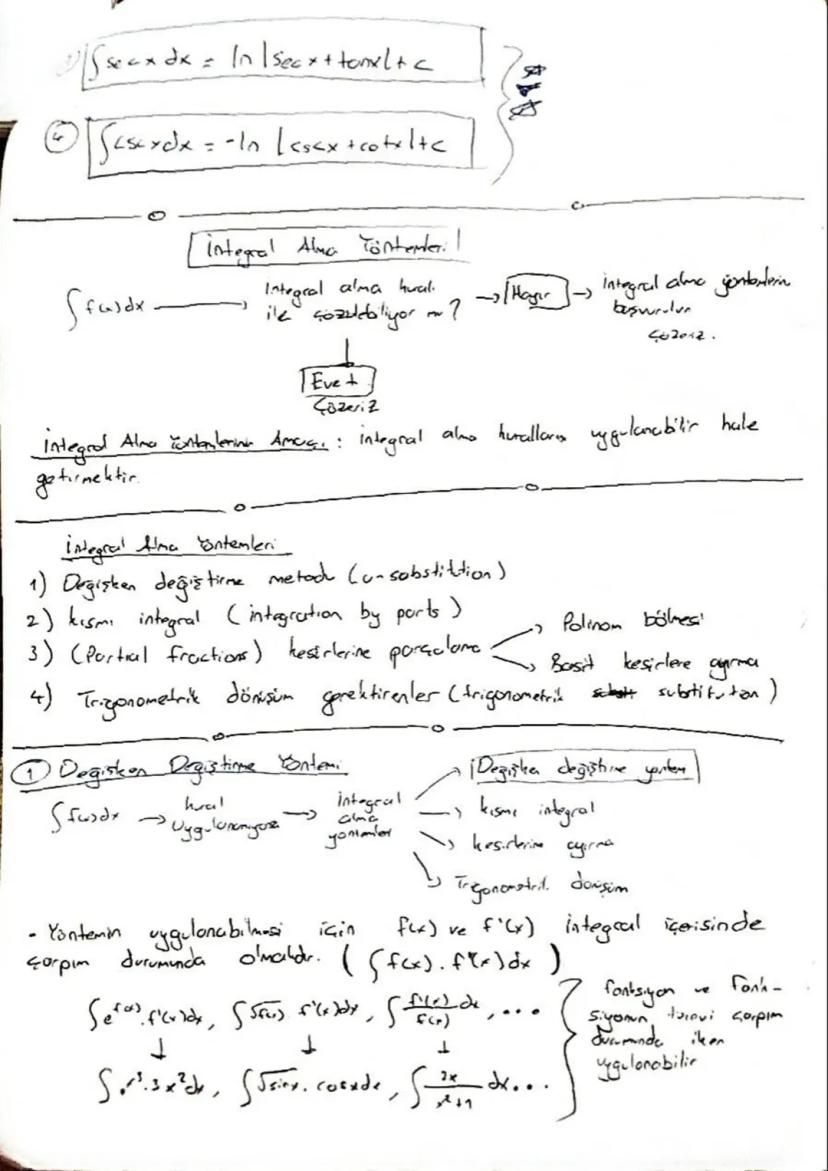 ∫secx dx = ln|secx+tanx|+c
④ ∫cscxdx = -ln|cscx+cotx|+c
İntegral Alma Yöntemleri
∫f(x)dx → integral alma kuralı ile çözülebiliyor mu? → Hayır → integral alma yöntemlerin başvurulur çözeriz.
Evet
Çözeriz
İntegral Alma Yöntemlerinin Amacı: integral alma kurallarını uygulanabilir hale
getirmektir.
İntegral Alma Yöntemleri
1) Değişken değiştirme metodu (u-substitution)
2) kısmi integral (integration by parts)
3) (Partial fractions) kesirlerine parçalama → Polinom bölmesi
→ Basit kesirlere ayırma
4) Trigonometrik dönüşüm gerektirenler (trigonometrik substitution)
① Değişken Değiştirme Yöntemi
∫f(x)dx → kural uygulanamıyorsa → integral alma yöntemleri
→ Değişken değiştirme yöntemi
→ kısmi integral
→ kesirlerine ayırma
→ Trigonometrik dönüşüm
- Yöntemin uygulanabilmesi için f(x) ve f'(x) integral içerisinde
çarpım durumunda olmalıdır. (∫f(x).f'(x)dx)
∫e^f(x).f'(x)dx, ∫√f(x) f'(x)dx, ∫f'(x)/f(x) dx, ...
↓ ↓ ↓
∫e^x³.3x²dx, ∫√sinx.cosxdx, ∫2x/(x²+1) dx...
fonksiyon ve fonk-
siyonun türevi çarpım
durumunda iken
uygulanabilir